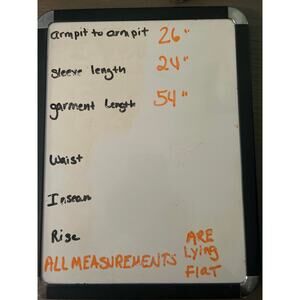 armpit to armpit 26"
sleeve length 24"
garment length 54"
Waist
Inseam
Rise
ALL MEASUREMENTS ARE
Lying
FLAT